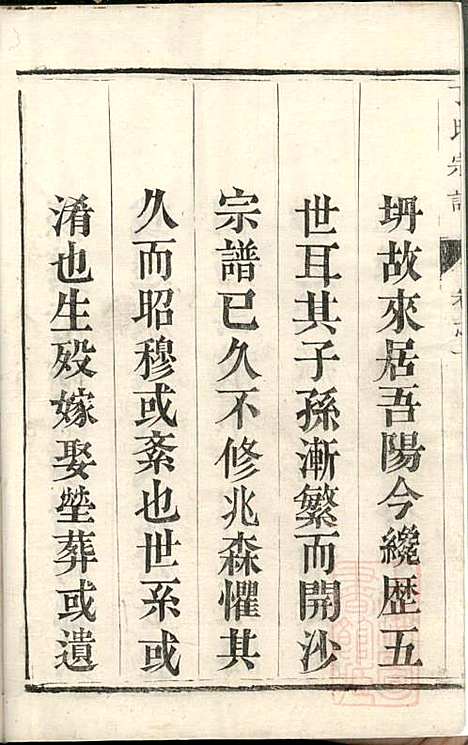 坍故來居吾陽今纔歴五
世耳其子孫漸繁而開沙
宗譜已久不修兆森懼其
久而昭穆或紊也世系或
淆也生殁嫁娶塋葬或遺